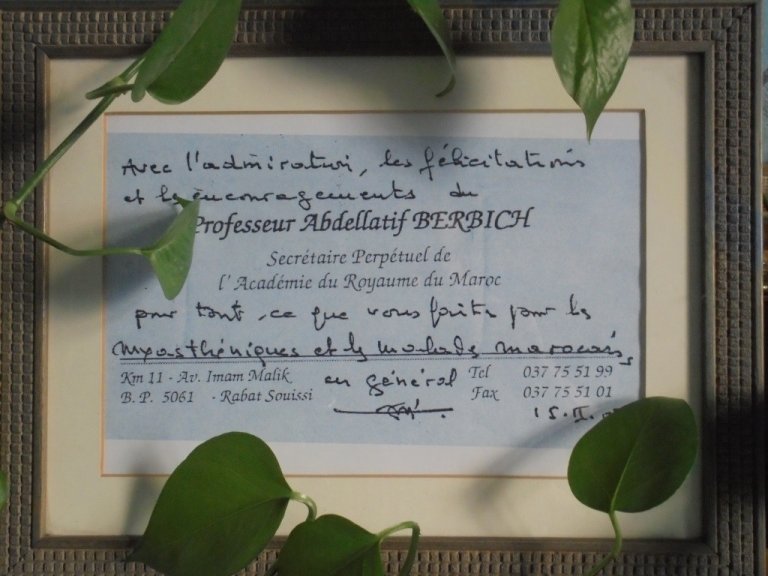 Avec l'admiration, les félicitations
et les encouragements du
Professeur Abdellatif BERBICH
Secrétaire Perpétuel de
l'Académie du Royaume du Maroc
pour tout ce que vous faites pour les
myasthéniques et les malades marocains
en général
Km 11 - Av. Imam Malik
B. P. 5061 - Rabat Souissi
Tel 037 75 51 99
Fax 037 75 51 01